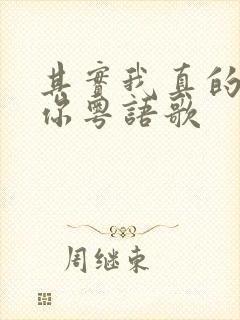 其實我真的
你粵語歌
周继東